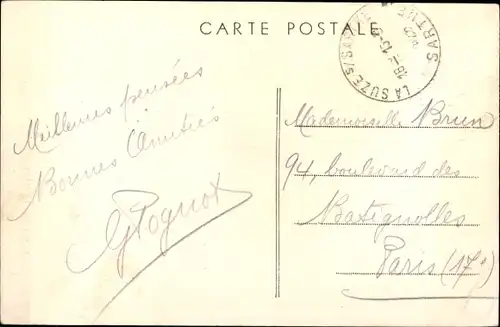 CARTE POSTALE
LA SUZE S/SAR
SARTHE
18 -15
Meilleures pensées
Bonnes Amitiés
Mademoiselle Brun
94, boulevard des
Batignolles
Paris (17e)